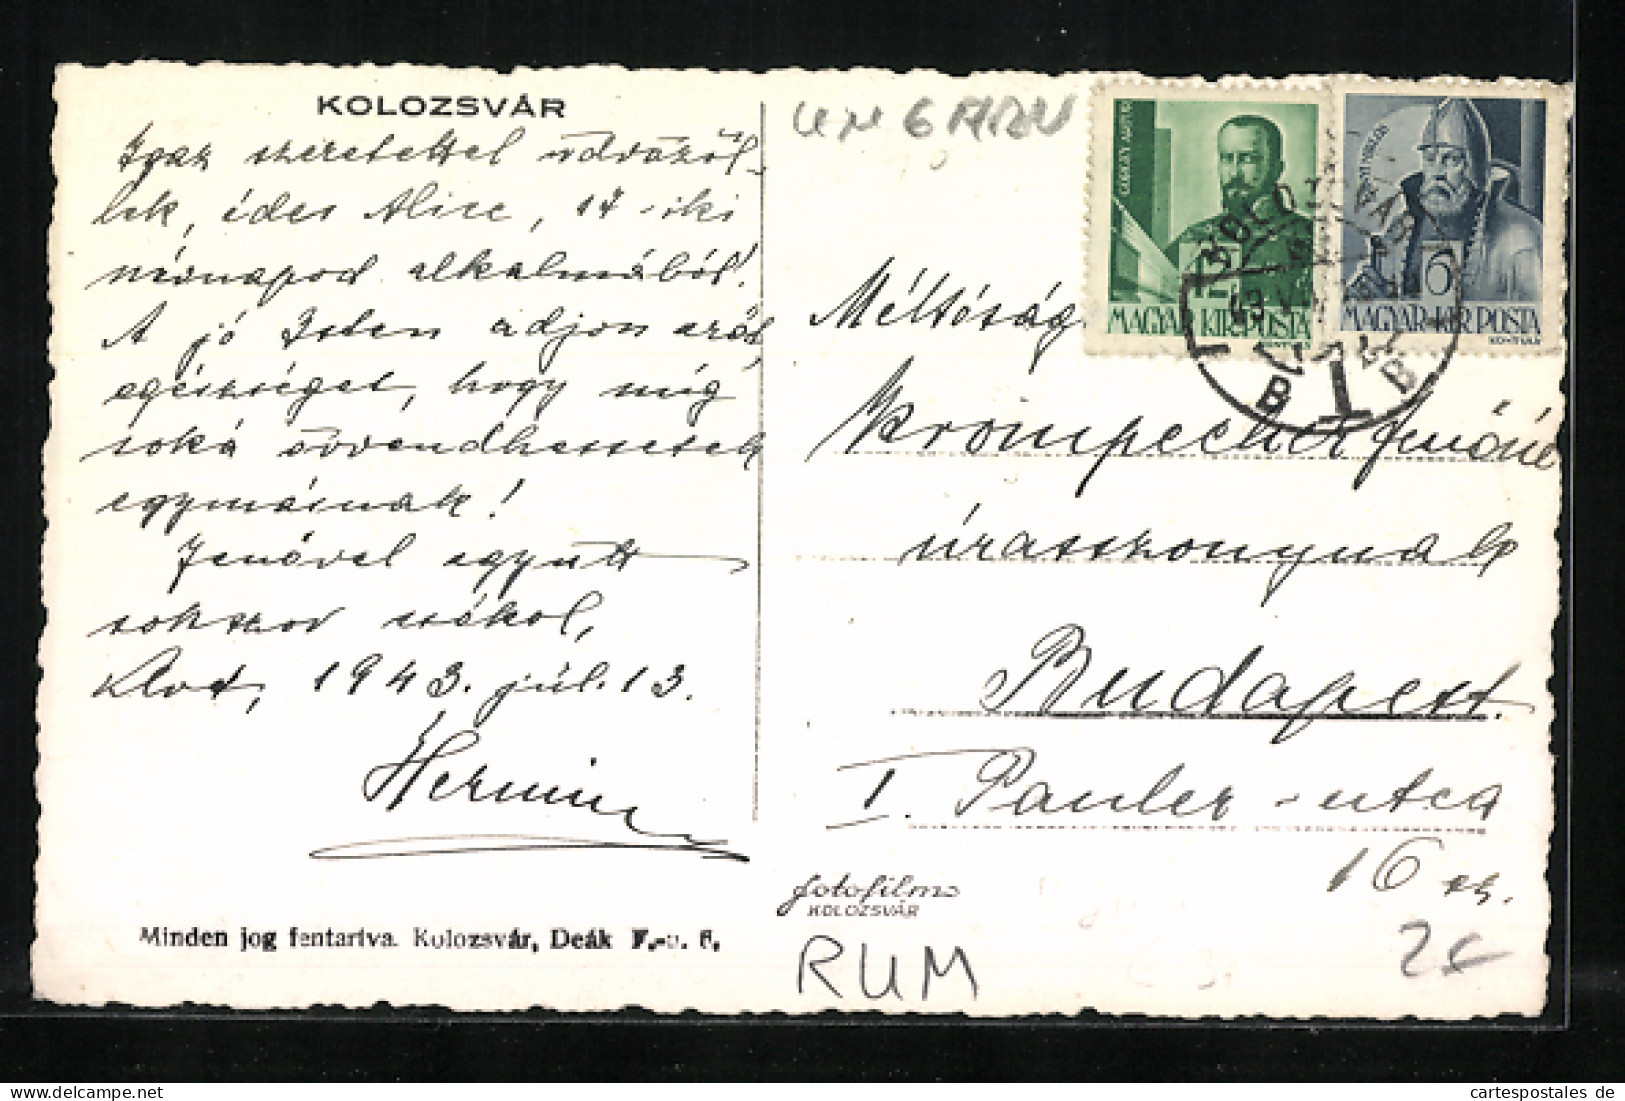 KOLOZSVÁR
Igaz szeretettel üdvözöl-
lek, édes Alice, 14-iki
névnapod alkalmából!
A jó Isten adjon erőt,
egészséget, hogy még
soká örvendhessetek
egymásnak!
Jenővel együtt
sokszor csókol,
1943. júl. 13.
Hermin
Minden jog fentartva. Kolozsvár, Deák F.-u. 6.
Méltóság
Krompecher Jenőné
úrasszonynak
Budapest.
I. Pauler-utca
16 sz.
fotofilm
KOLOZSVÁR
RUM
MAGYAR KIR. POSTA
12
MAGYAR KIR POSTA
6
KOLOZSVÁR
B 1 B
cartespostales de